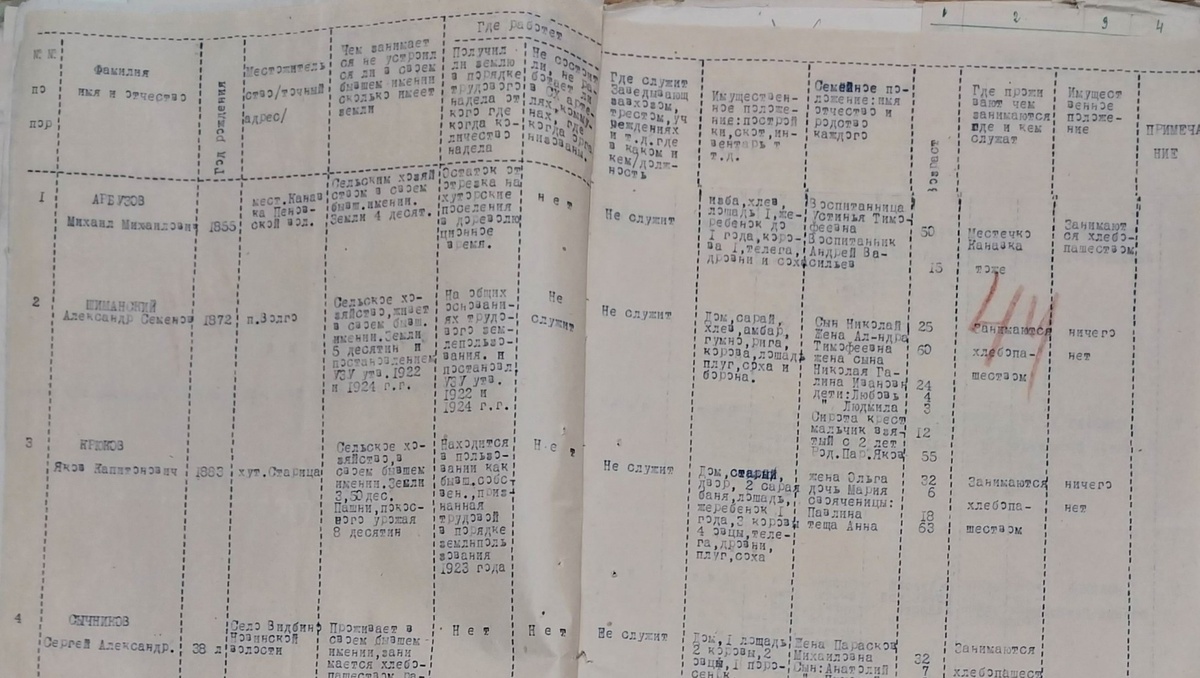 1 2 3 4
Где работет
№ №
по
пор
Фамилия
имя и отчество
Год рождения
Местожитель
ство/точный
адрес/
Чем занимает
ся не устроил
ся ли в своем
бывшем имении
сколько имеет
земли
Получил
ли землю
в порядке
трудового
надела от
кого где
когда ко-
личество
надела
Не состоит
ли, не ра-
ботает ли
в с/х арте-
лях, комму-
нах, где
когда орга-
низованы.
Где служит
Заведывающ
завхозом,
трестом, уч
реждениях
и т.д. где
в каком и
кем/долж-
ность
Имуществен-
ное положе-
ние: построй
ки, скот, ин-
вентарь т
т.д.
Семейное по-
ложение: имя
отчество и
родство
каждого
возраст
Где прожи
вают чем
занимаются
где и кем
служат
Имущест
венное
положе-
ние
ПРИМЕЧА
НИЕ
1
АРБУЗОВ
Михаил Михайлович
1855
мест. Канав
ка Пенов-
ской вол.
Сельским хозяй
ством в своем
бывш. имении.
Земли 4 десят.
Остаток от
отрезка на
хуторские
поселения
в дореволю
ционное
время.
нет
Не служит
изба, хлев,
лошадь 1, же-
ребенок до
1 года, коро-
ва 1, телега,
дровни и соха
Воспитанница
Устинья Тимо-
феевна
Воспитанник
Андрей Ва-
сильев
50
13
Местечко
Канавка
тоже
Занимают
ся хлебо-
пашеством
2
ШИМАНСКИЙ
Александр Семенов
1872
п. Волго
Сельское хо-
зяйство, живет
в своем бывш.
имении. Земли
5 десятин и
постановлением
УЗУ утв. 1922
и 1924 г.г.
На общих
основани-
ях трудо-
вого зем-
лепользо-
вания. и
постановл.
УЗУ утв.
1922 и
1924 г.г.
Не
служит
Не служит
Дом, сарай,
хлев, амбар,
гумно, рига,
корова, лошадь
плуг, соха и
борона.
Сын Николай
Жена Ал-ндра
Тимофеевна
жена сына
Николая Га-
лина Ивановн
дети: Любовь
" Людмила
Сирота крест
мальчик взя-
тый с 2 лет
Вод. Пар. Яков
25
60
24
4
3
12
55
Занимаются
хлебопа-
шеством
ничего
нет
44
3
КРЮКОВ
Яков Капитонович
1883
хут. Старица
Сельское хо-
зяйство, в
своем бывшем
имении. Земли
3,50 дес.
Пашни, покос-
ного урожая
8 десятин
Находится
в пользо-
вании как
бывш. собст
вен., приз-
нанная
трудовой
в порядке
землпольз
зования
1923 года
Нет
Не служит
Дом, старый,
двор, 2 сарая
баня, лошадь,
жеребенок 1
года, 3 коровы
4 овцы, теле-
га, дровни,
плуг, соха
жена Ольга
дочь Мария
свояченицы:
Павлина
теща Анна
32
6
18
63
Занимаются
хлебопа-
шеством
ничего
нет
4
СЫЧНИКОВ
Сергей Александр.
38 л
Село Видбино
Новинской
волости
Проживает в
своем бывшем
имении, зани
мается хлебо-
Нет
Нет
Не служит
Дом, 1 лошадь
2 коровы, 2
овцы, 1 поро-
сенок
Жена Парасков
Михайловна
Сын: Анатолий
32
7
Занимаются
хлебопашест